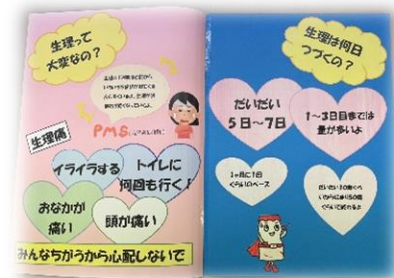 生理って
大変なの？
PMS
生理痛
イライラする
トイレに
何回も行く！
おなかが
痛い
頭が痛い
みんなちがうから心配しないで
生理は何日
つづくの？
だいたい
5日～7日
1～3日目までは
量が多いよ
1ヶ月に1回
ぐらいのペース